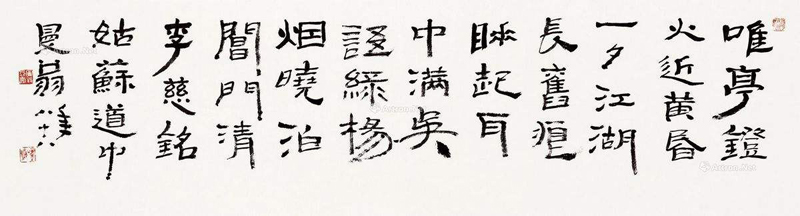 唯亭鐙
火近黄昏
一夕江湖
長舊痕
睡起耳
中满吳
語綠楊
烟曉泊
閶門清
李慈銘
姑蘇道中
曼翁